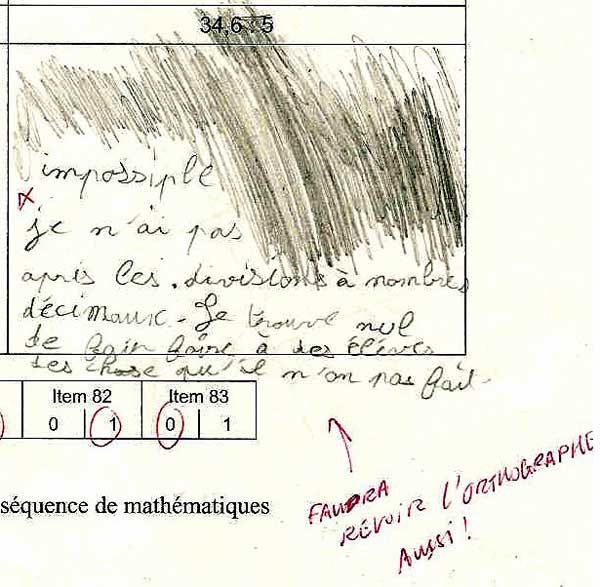 34,6 : 5
impossiple
x
je n'ai pas
apris les divisions à nombres
décimaux. Je trouve nul
de fair faire à des élèves
des chose qu'il n'on pas fait.
Item 82 Item 83
0 1 0 1
séquence de mathématiques
FAUDRA
REVOIR L'ORTHOGRAPHE
AUSSI !